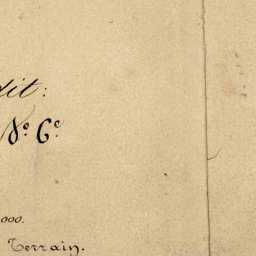 dit:
N° 6°
000.
Terrain.